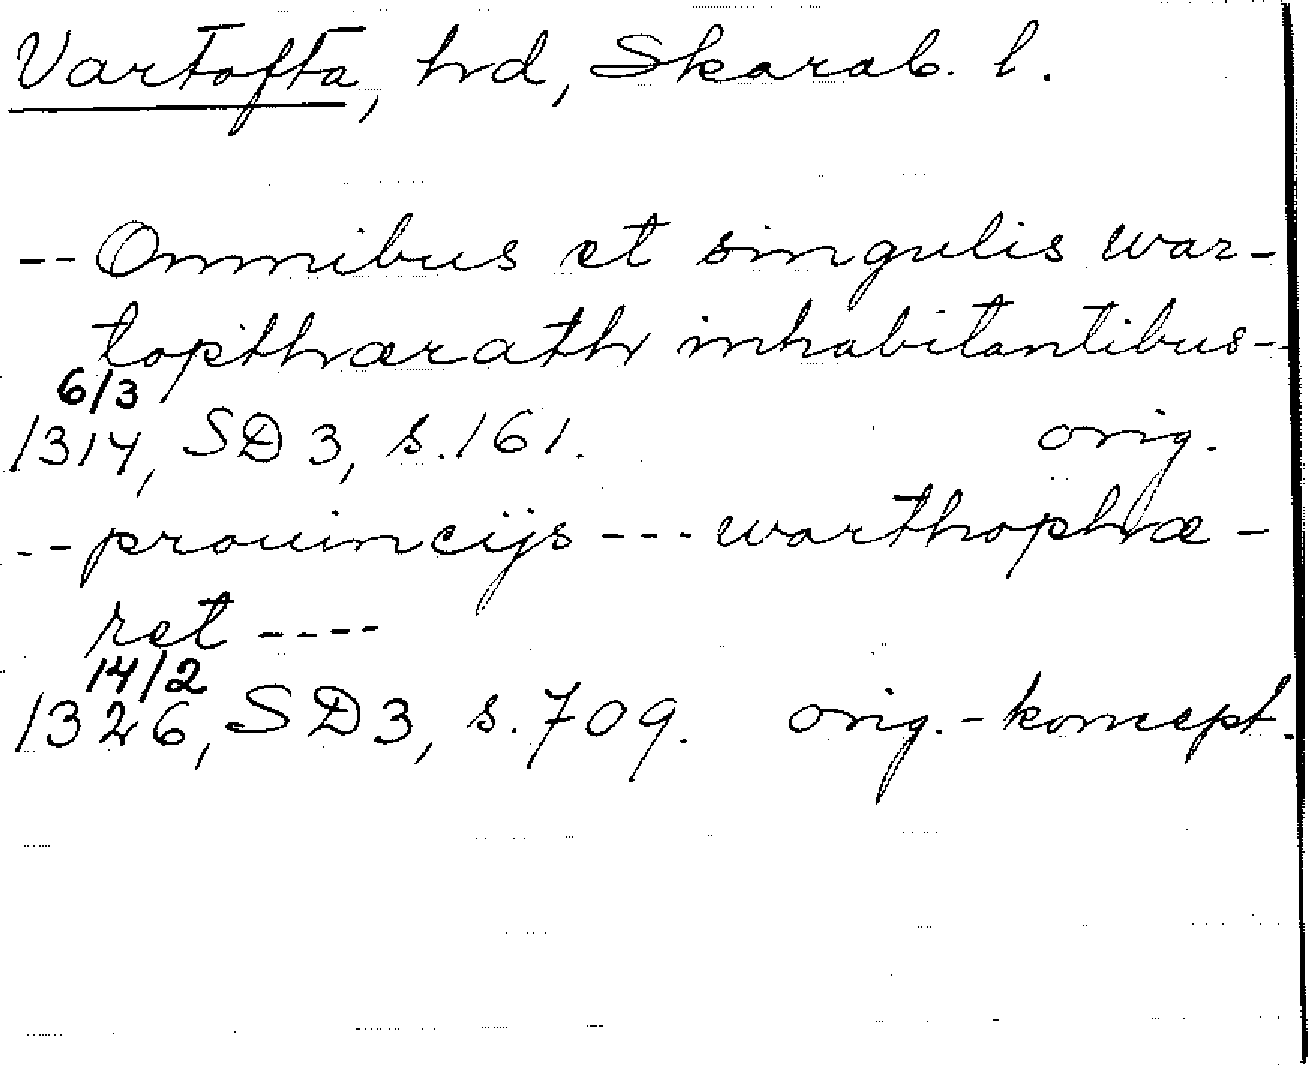 Vartofta, hd, Skarab. l.
-- Omnibus et singulis war-
topthærath inhabitantibus--
6/3
1314, SD 3, s. 161. orig.
-- prouincijs --- warthophæ-
ret ----
14/2
1326, SD 3, s. 709. orig.-koncept.